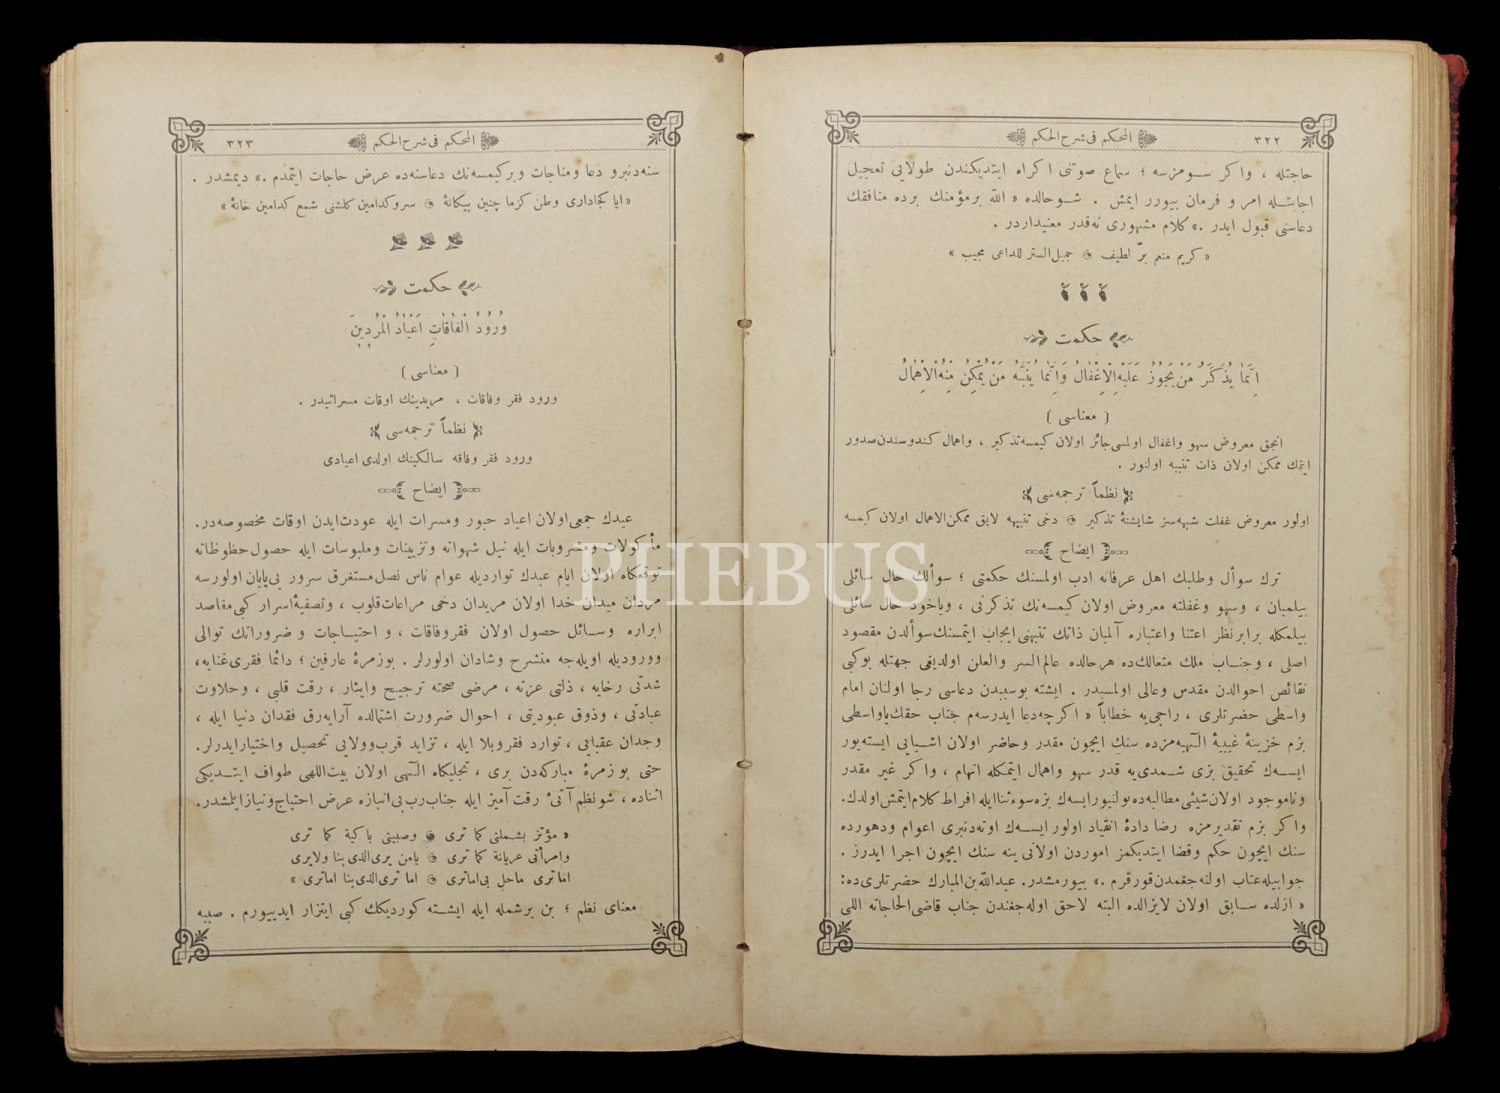 ٣٢٢
المحكم فى شرح الحكم
حاجتله ، واكر سومزسه ؛ سماع صوتنى اكراه ايتديكندن طولايى تعجيل
اجابتله امر و فرمان بيورر ايمش . شوحالده « الله برمؤمنك برده منافقك
دعاسنى قبول ايدر .» كلام مشهورى نه‌قدر معنيداردر .
« كريم منعم برّ لطيف ۞ جميل الستر للداعى مجيب »
حكمت
اِنَّمَا يُذَكَّرُ مَنْ يَجُوزُ عَلَيْهِ الْاِغْفَالُ وَاِنَّمَا يُنَبَّهُ مَنْ يُمْكِنُ مِنْهُ الْاِهْمَالُ
( معناسى )
انجق معروض سهو واغفال اولمسى جائز اولان كيمسه تذكير ، واهمال كندوسندن صدور
ايتمك ممكن اولان ذات تنبيه اولنور .
نظماً ترجمه‌سى
اولور معروض غفلت شبهه‌سز شايستۀ تذكير ۞ دخى تنبيهه لايق ممكن الاهمال اولان كيمسه
ايضاح
ترك سوأل وطلبك اهل عرفانه ادب اولمسنك حكمتى ؛ سوألك حال سائلى
بيلميان ، وسهو وغفلته معروض اولان كيمسه‌نك تذكرنى ، وياخود حال سائلى
بيلمكله برابر نظر اعتنا واعتباره آلميان ذاتك تنبهنى ايجاب ايتمسنك سوألدن مقصود
اصلى ، وجناب ملك متعالك‌ده هرحالده عالم السر والعلن اولديغى جهتله بوكبى
نقائص احوالدن مقدس وعالى اولمسيدر . ايشته بوسببدن دعاسى رجا اولنان امام
واسطى حضرتلرى ، راجى‌يه خطاباً « اكرچه دعا ايدرسه‌م جناب حقك ياواسطى
بزم خزينۀ غيبيۀ الٓهيه‌مزده سنك ايچون مقدر وحاضر اولان اشيايى ايسته‌يور
ايسه‌ك تحقيق بزى شمدى‌يه قدر سهو واهمال ايتمكله اتهام ، واكر غير مقدر
وناموجود اولان شيئى مطالبه‌ده بولنيور ايسه‌ك بزه سوء ثنا ايله افراط كلام ايتمش اولدك.
واكر بزم تقديرمزه رضا دادۀ انقياد اولور ايسه‌ك اوته‌دنبرى اعوام ودهورده
سنك ايچون حكم وقضا ايتديكمز اموردن اولانى ينه سنك ايچون اجرا ايدرز .
جوابيله عتاب اولنه‌جغمدن قورقرم .» بيورمشدر. عبدالله بن المبارك حضرتلرى‌ده:
« ازلده سابق اولان لايزالده البته لاحق اوله‌جغندن جناب قاضى الحاجاته اللى
٣٢٣
المحكم فى شرح الحكم
سنه‌دنبرو دعا ومناجات وبركيمسه‌نك دعاسنه‌ده عرض حاجات ايتمدم .» ديمشدر .
« ايا كجادارى وطن كزما چنين بيكانۀ ۞ سرو كدامين كلشنى شمع كدامين خانۀ »
حكمت
وُرُودُ الْفَاقَاتِ اَعْيَادُ الْمُرِيدِينَ
( معناسى )
ورود فقر وفاقات ، مريدينك اوقات مسراتيدر .
نظماً ترجمه‌سى
ورود فقر وفاقه سالكينك اولدى اعيادى
ايضاح
عيدك جمعى اولان اعياد حبور ومسرات ايله عودت ايدن اوقات مخصوصه‌در.
مأكولات ومشروبات ايله نيل شهواته وتزيينات وملبوسات ايله حصول حظوظاته
توقعكاه اولان ايام عيدك تواردیله عوام ناس نصل مستغرق سرور بى پايان اولورسه
مردان ميدان خدا اولان مريدان دخى مراعات قلوب ، وتصفيۀ اسرار كبى مقاصد
ابراره وسائل حصول اولان فقر وفاقات ، و احتياجات و ضروراتك توالى
ووروديله اويله‌جه منشرح وشادان اولورلر . بو زمرۀ عارفين ؛ دائما فقرى غنايه،
شدتى رخايه ، ذلتى عزته ، مرضى صحته ترجيح وايثار ، رقت قلبى ، وحلاوت
عبادتى ، وذوق عبوديتى ، احوال ضرورت اشتمالده آرايه‌رق فقدان دنيا ايله ،
وجدان عقبايى ، توارد فقر وبلا ايله ، تزايد قرب وولايى تحصيل واختيار ايدرلر.
حتى بو زمرۀ مباركه‌دن برى ، تجليكاه الٓهى اولان بيت اللهى طواف ايتديكى
اثناده ، شو نظم آتئ رقت آميز ايله جناب رب بى انبازه عرض احتياج ونياز ايلمشدر.
« مؤتزر بشملتى كما ترى ۞ وصبيتى باكية كما ترى
وامرأتى عريانة كما ترى ۞ يامن يرى الذى بنا ولايرى
اما ترى ماحل بى اماترى ۞ اما ترى الذى بنا اماترى »
معناى نظم ؛ بن برشمله ايله ايشته كورديكك كبى ايتزار ايدييورم . صبيه